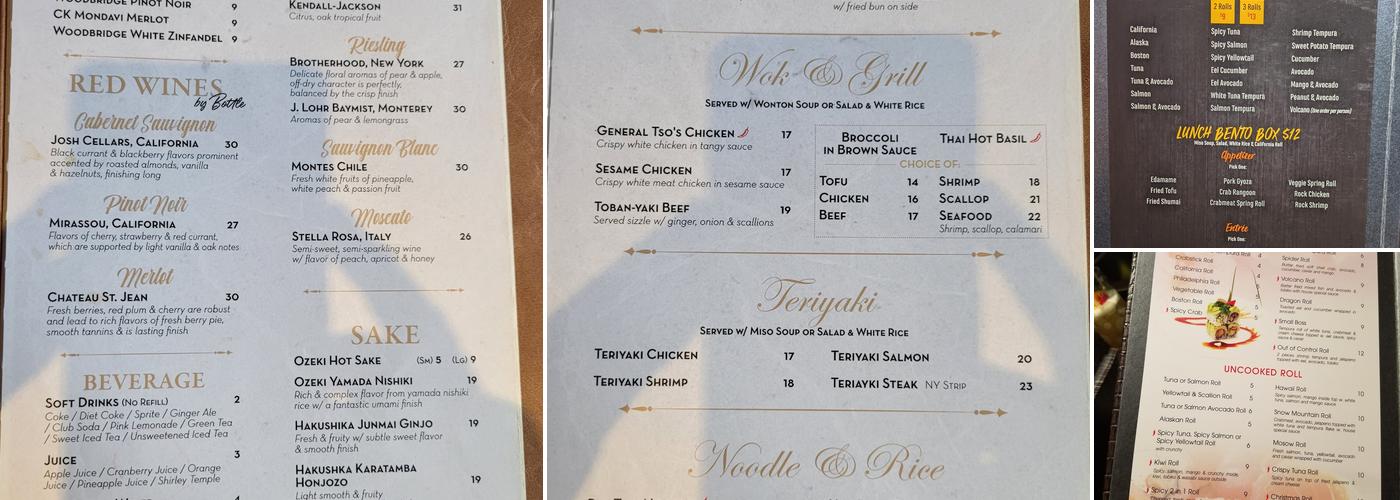 WOODBRIDGE PINOT NOIR 9
CK MONDAVI MERLOT 9
WOODBRIDGE WHITE ZINFANDEL 9
RED WINES
by Bottle
Cabernet Sauvignon
JOSH CELLARS, CALIFORNIA 30
Black currant & blackberry flavors prominent
accented by roasted almonds, vanilla
& hazelnuts, finishing long
Pinot Noir
MIRASSOU, CALIFORNIA 27
Flavors of cherry, strawberry & red currant,
which are supported by light vanilla & oak notes
Merlot
CHATEAU ST. JEAN 30
Fresh berries, red plum & cherry are robust
and lead to rich flavors of fresh berry pie,
smooth tannins & is lasting finish
BEVERAGE
SOFT DRINKS (NO REFILL) 2
Coke / Diet Coke / Sprite / Ginger Ale
/ Club Soda / Pink Lemonade / Green Tea
/ Sweet Iced Tea / Unsweetened Iced Tea
JUICE 3
Apple Juice / Cranberry Juice / Orange
Juice / Pineapple Juice / Shirley Temple
KENDALL-JACKSON 31
Citrus, oak tropical fruit
Riesling
BROTHERHOOD, NEW YORK 27
Delicate floral aromas of pear & apple,
off-dry character is perfectly,
balanced by the crisp finish
J. LOHR BAYMIST, MONTEREY 30
Aromas of pear & lemongrass
Sauvignon Blanc
MONTES CHILE 30
Fresh white fruits of pineapple,
white peach & passion fruit
Moscato
STELLA ROSA, ITALY 26
Semi-sweet, semi-sparkling wine
w/ flavor of peach, apricot & honey
SAKE
OZEKI HOT SAKE (SM) 5 (LG) 9
OZEKI YAMADA NISHIKI 19
Rich & complex flavor from yamada nishiki
rice w/ a fantastic umami finish
HAKUSHIKA JUNMAI GINJO 19
Fresh & fruity w/ subtle sweet flavor
& smooth finish
HAKUSHKA KARATAMBA
HONJOZO 19
Light smooth & fruity
w/ fried bun on side
Wok & Grill
SERVED W/ WONTON SOUP OR SALAD & WHITE RICE
GENERAL TSO'S CHICKEN 17
Crispy white chicken in tangy sauce
SESAME CHICKEN 17
Crispy white meat chicken in sesame sauce
TOBAN-YAKI BEEF 19
Served sizzle w/ ginger, onion & scallions
BROCCOLI
IN BROWN SAUCE
THAI HOT BASIL
CHOICE OF:
TOFU 14 SHRIMP 18
CHICKEN 16 SCALLOP 21
BEEF 17 SEAFOOD 22
Shrimp, scallop, calamari
Teriyaki
SERVED W/ MISO SOUP OR SALAD & WHITE RICE
TERIYAKI CHICKEN 17 TERIYAKI SALMON 20
TERIYAKI SHRIMP 18 TERIAYKI STEAK NY STRIP 23
Noodle & Rice
2 Rolls 3 Rolls
$9 $13
California Spicy Tuna Shrimp Tempura
Alaska Spicy Salmon Sweet Potato Tempura
Boston Spicy Yellowtail Cucumber
Tuna Eel Cucumber Avocado
Tuna & Avocado Eel Avocado Mango & Avocado
Salmon White Tuna Tempura Peanut & Avocado
Salmon & Avocado Salmon Tempura Volcano (one order per person)
LUNCH BENTO BOX $12
Miso Soup, Salad, White Rice & California Roll
Appetizer
Pick One:
Edamame Pork Gyoza Veggie Spring Roll
Fried Tofu Crab Rangoon Rock Chicken
Fried Shumai Crabmeat Spring Roll Rock Shrimp
Entrée
Pick One:
Crabstick Roll 4
California Roll
Philadelphia Roll
Vegetable Roll
Boston Roll
Spicy Crab 5
Spider Roll 8
Volcano Roll 9
Dragon Roll
Small Boss 9
Out of Control Roll 12
UNCOOKED ROLL
Tuna or Salmon Roll 5
Yellowtail & Scallion Roll 5
Tuna or Salmon Avocado Roll 6
Alaskan Roll 5
Spicy Tuna, Spicy Salmon or
Spicy Yellowtail Roll 6
with crunchy
Kiwi Roll 9
Spicy 2 in 1 Roll 9
Hawaii Roll 10
Snow Mountain Roll 10
Mosow Roll 10
Crispy Tuna Roll 10
Christmas Roll